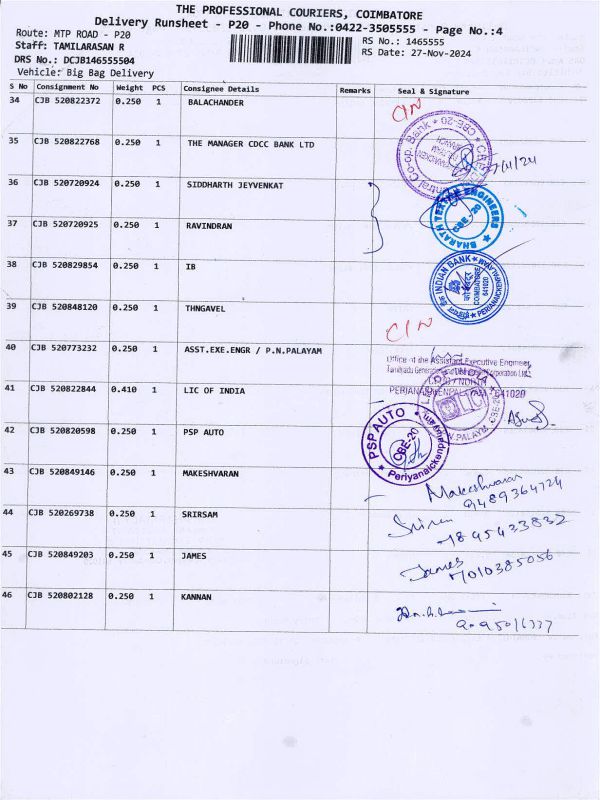 THE PROFESSIONAL COURIERS, COIMBATORE
Delivery Runsheet - P20 - Phone No.:0422-3505555 - Page No.:4
Route: MTP ROAD - P20
RS No.: 1465555
Staff: TAMILARASAN R
RS Date: 27-Nov-2024
DRS No.: DCJB146555504
Vehicle: Big Bag Delivery
S No Consignment No Weight PCS Consignee Details Remarks Seal & Signature
34 CJB 520822372 0.250 1 BALACHANDER
CIN
35 CJB 520822768 0.250 1 THE MANAGER CDCC BANK LTD
Central Co-op. Bank * CBE-20
36 CJB 520720924 0.250 1 SIDDHARTH JEYVENKAT
37 CJB 520720925 0.250 1 RAVINDRAN
BHARATH ENGINEERS
CBE-20
38 CJB 520829854 0.250 1 IB
INDIAN BANK
COIMBATORE
641020
39 CJB 520848120 0.250 1 THNGAVEL
CIN
40 CJB 520773232 0.250 1 ASST.EXE.ENGR / P.N.PALAYAM
Office of the Assistant Executive Engineer,
41 CJB 520822844 0.410 1 LIC OF INDIA
42 CJB 520820598 0.250 1 PSP AUTO
PSP AUTO
CBE-20
Periyanaickenpalayam
43 CJB 520849146 0.250 1 MAKESHVARAN
Makeshvaran
9489364724
44 CJB 520269738 0.250 1 SRIRSAM
45 CJB 520849203 0.250 1 JAMES
James
7010385056
46 CJB 520802128 0.250 1 KANNAN